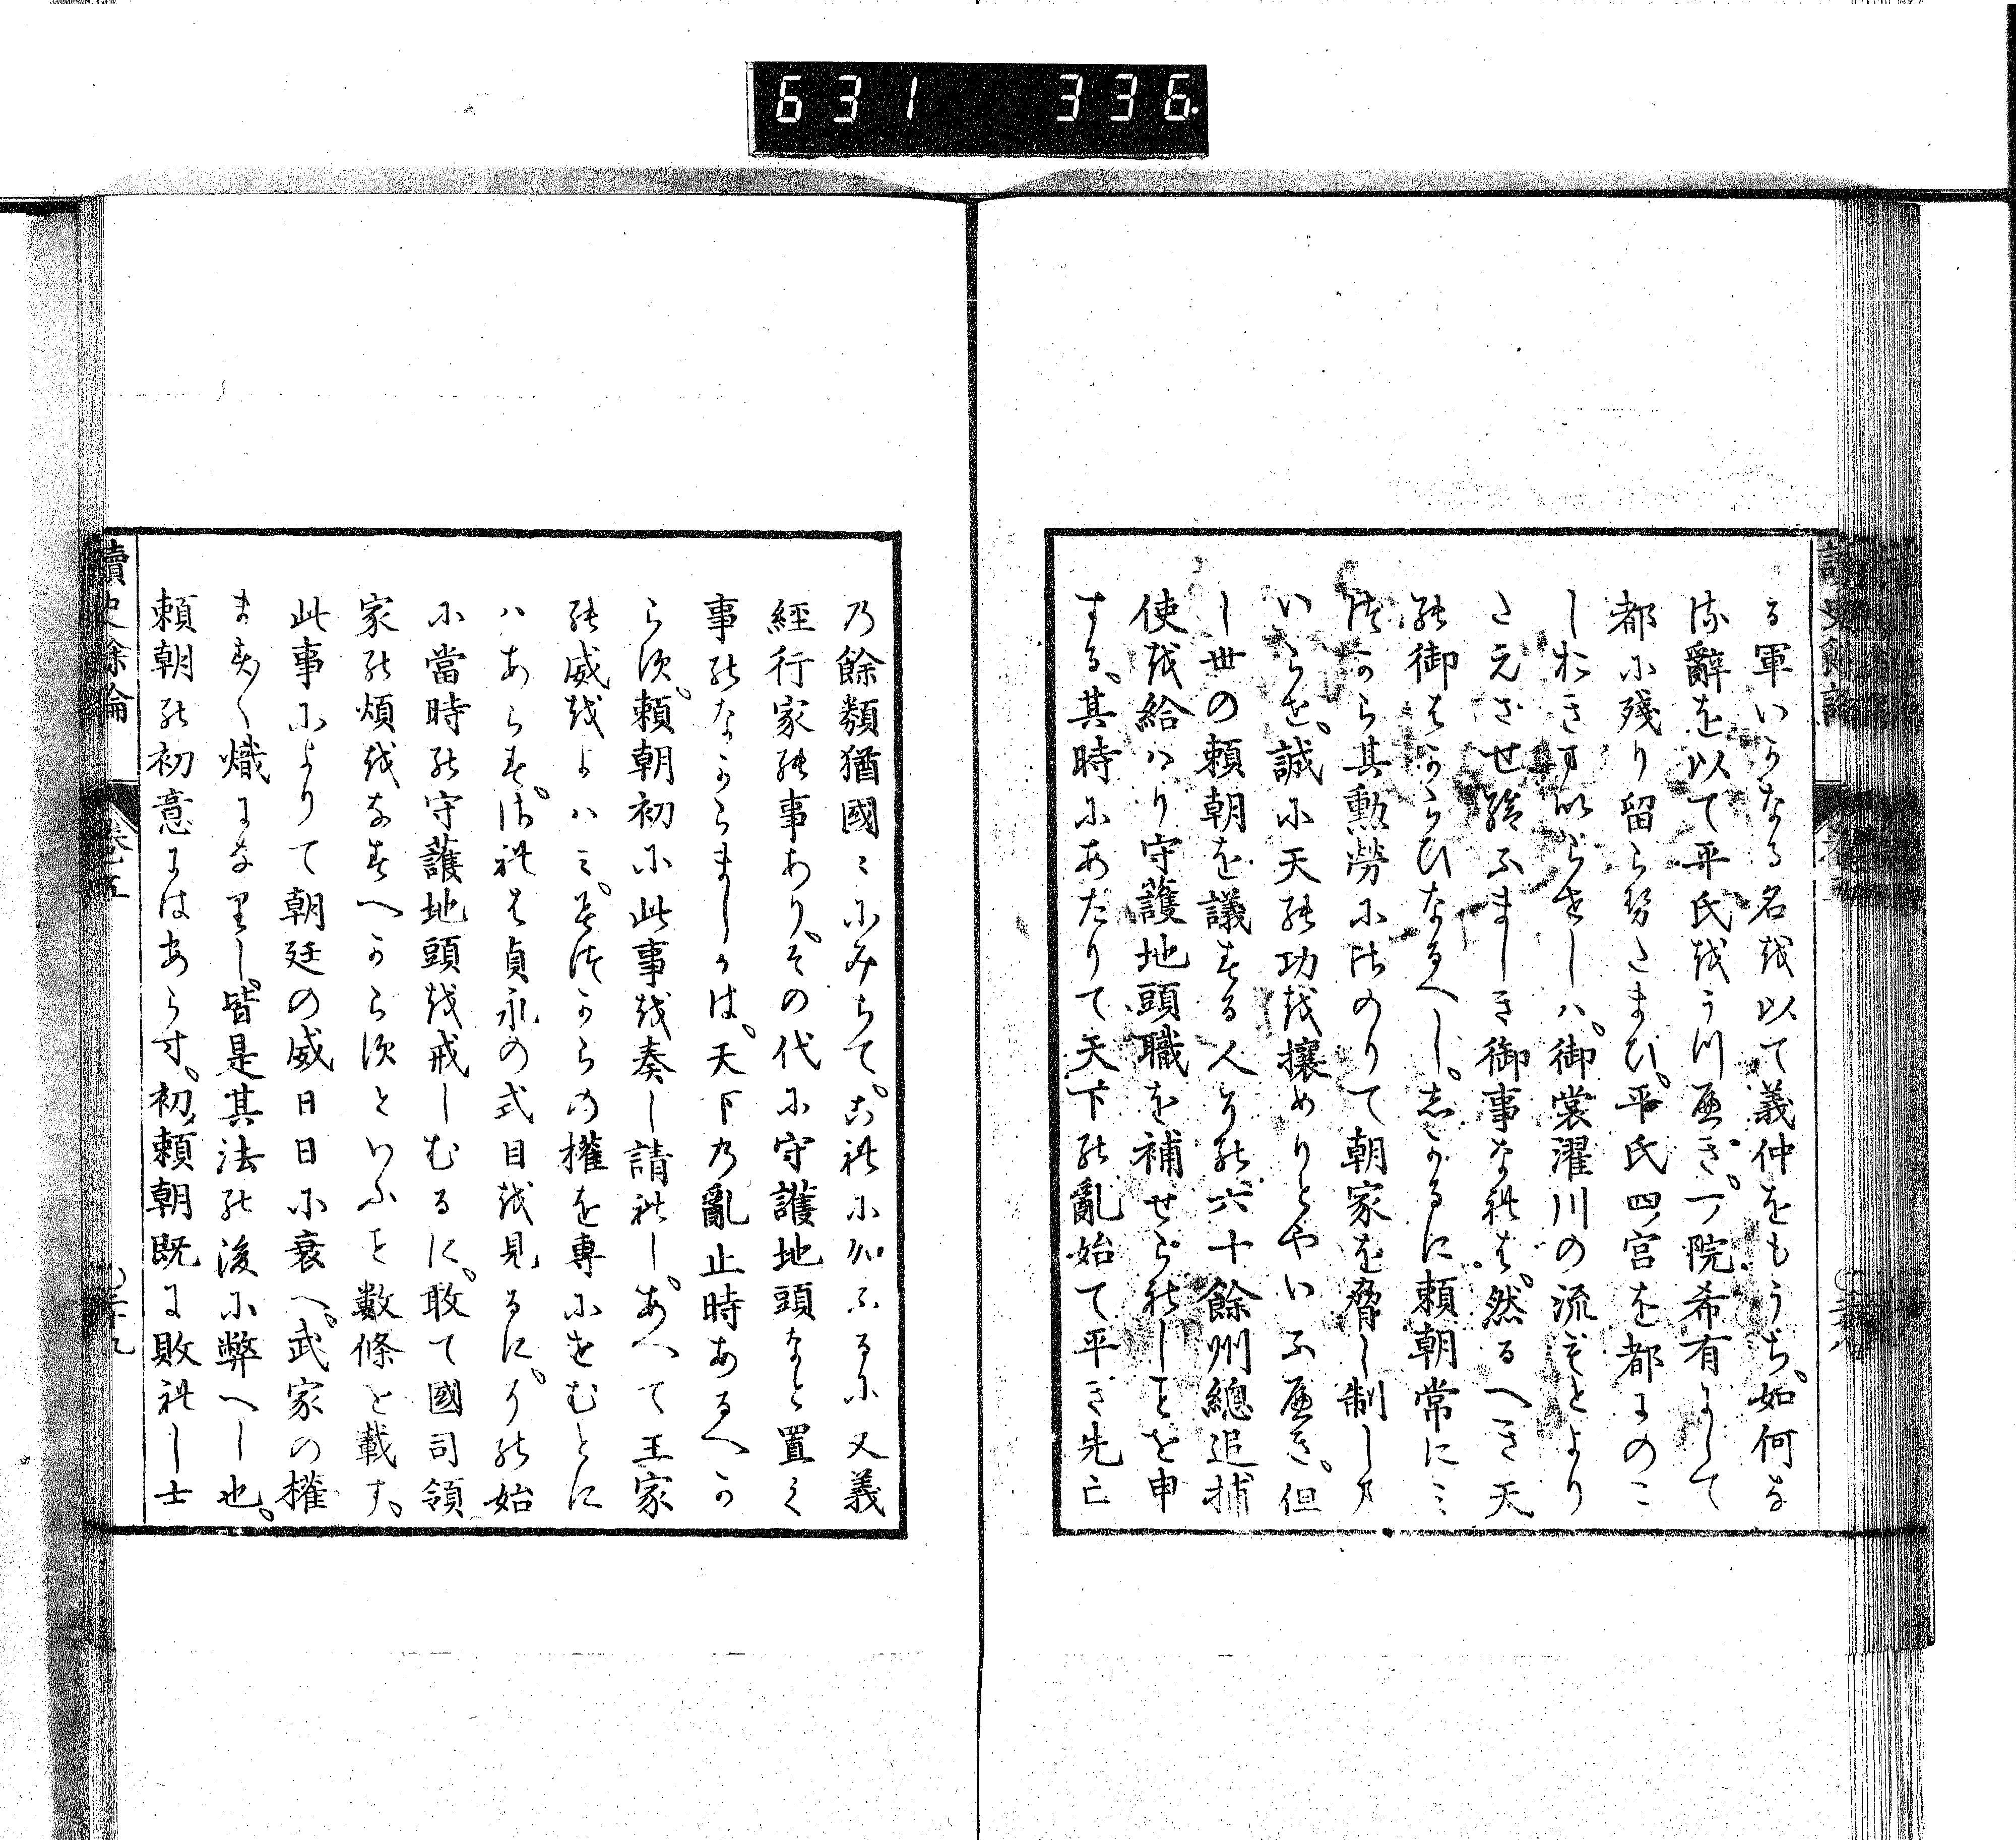 631 336
る軍いかなる名を以て義仲をもうち、如何な
る辭を以て平氏をうつへき、一院希有にして
都に殘り留らせたまひ、平氏四宮を都にのこ
しおきまいらせしハ、御裳濯川の流もとより
たえさせ給ふましき御事なれは、然るへき天
の御はからひなるへし、しかるに頼朝常にミ
つから其勲勞にほのりて朝家を脅し制しま
いらせ、誠に天の功を攘めりとやいふへき、但
し世の頼朝を議する人その六十餘州總追捕
使を給ハり守護地頭職を補せられしことを申
する、其時にあたりて天下の亂始て平き先亡
の餘類猶國ミにみちて、これに加ふるに又義
經行家の事あり、その代に守護地頭なと置く
事のなからましかは、天下の亂止時あるへか
らす、頼朝初に此事を奏し請れし、あへて王家
の威をよハミ、みつからの權を專にせむとに
ハあらす、されは貞永の式目を見るに、その始
に當時の守護地頭を戒しむるに、敢て國司領
家の煩をなすへからすといふこと數條を載す、
此事によりて朝廷の威日日に衰へ、武家の權
ます〱熾になりし、皆是其法の後に弊へし也、
頼朝の初意にはあらす、初頼朝既に敗れし士
讀史餘論 卷之五